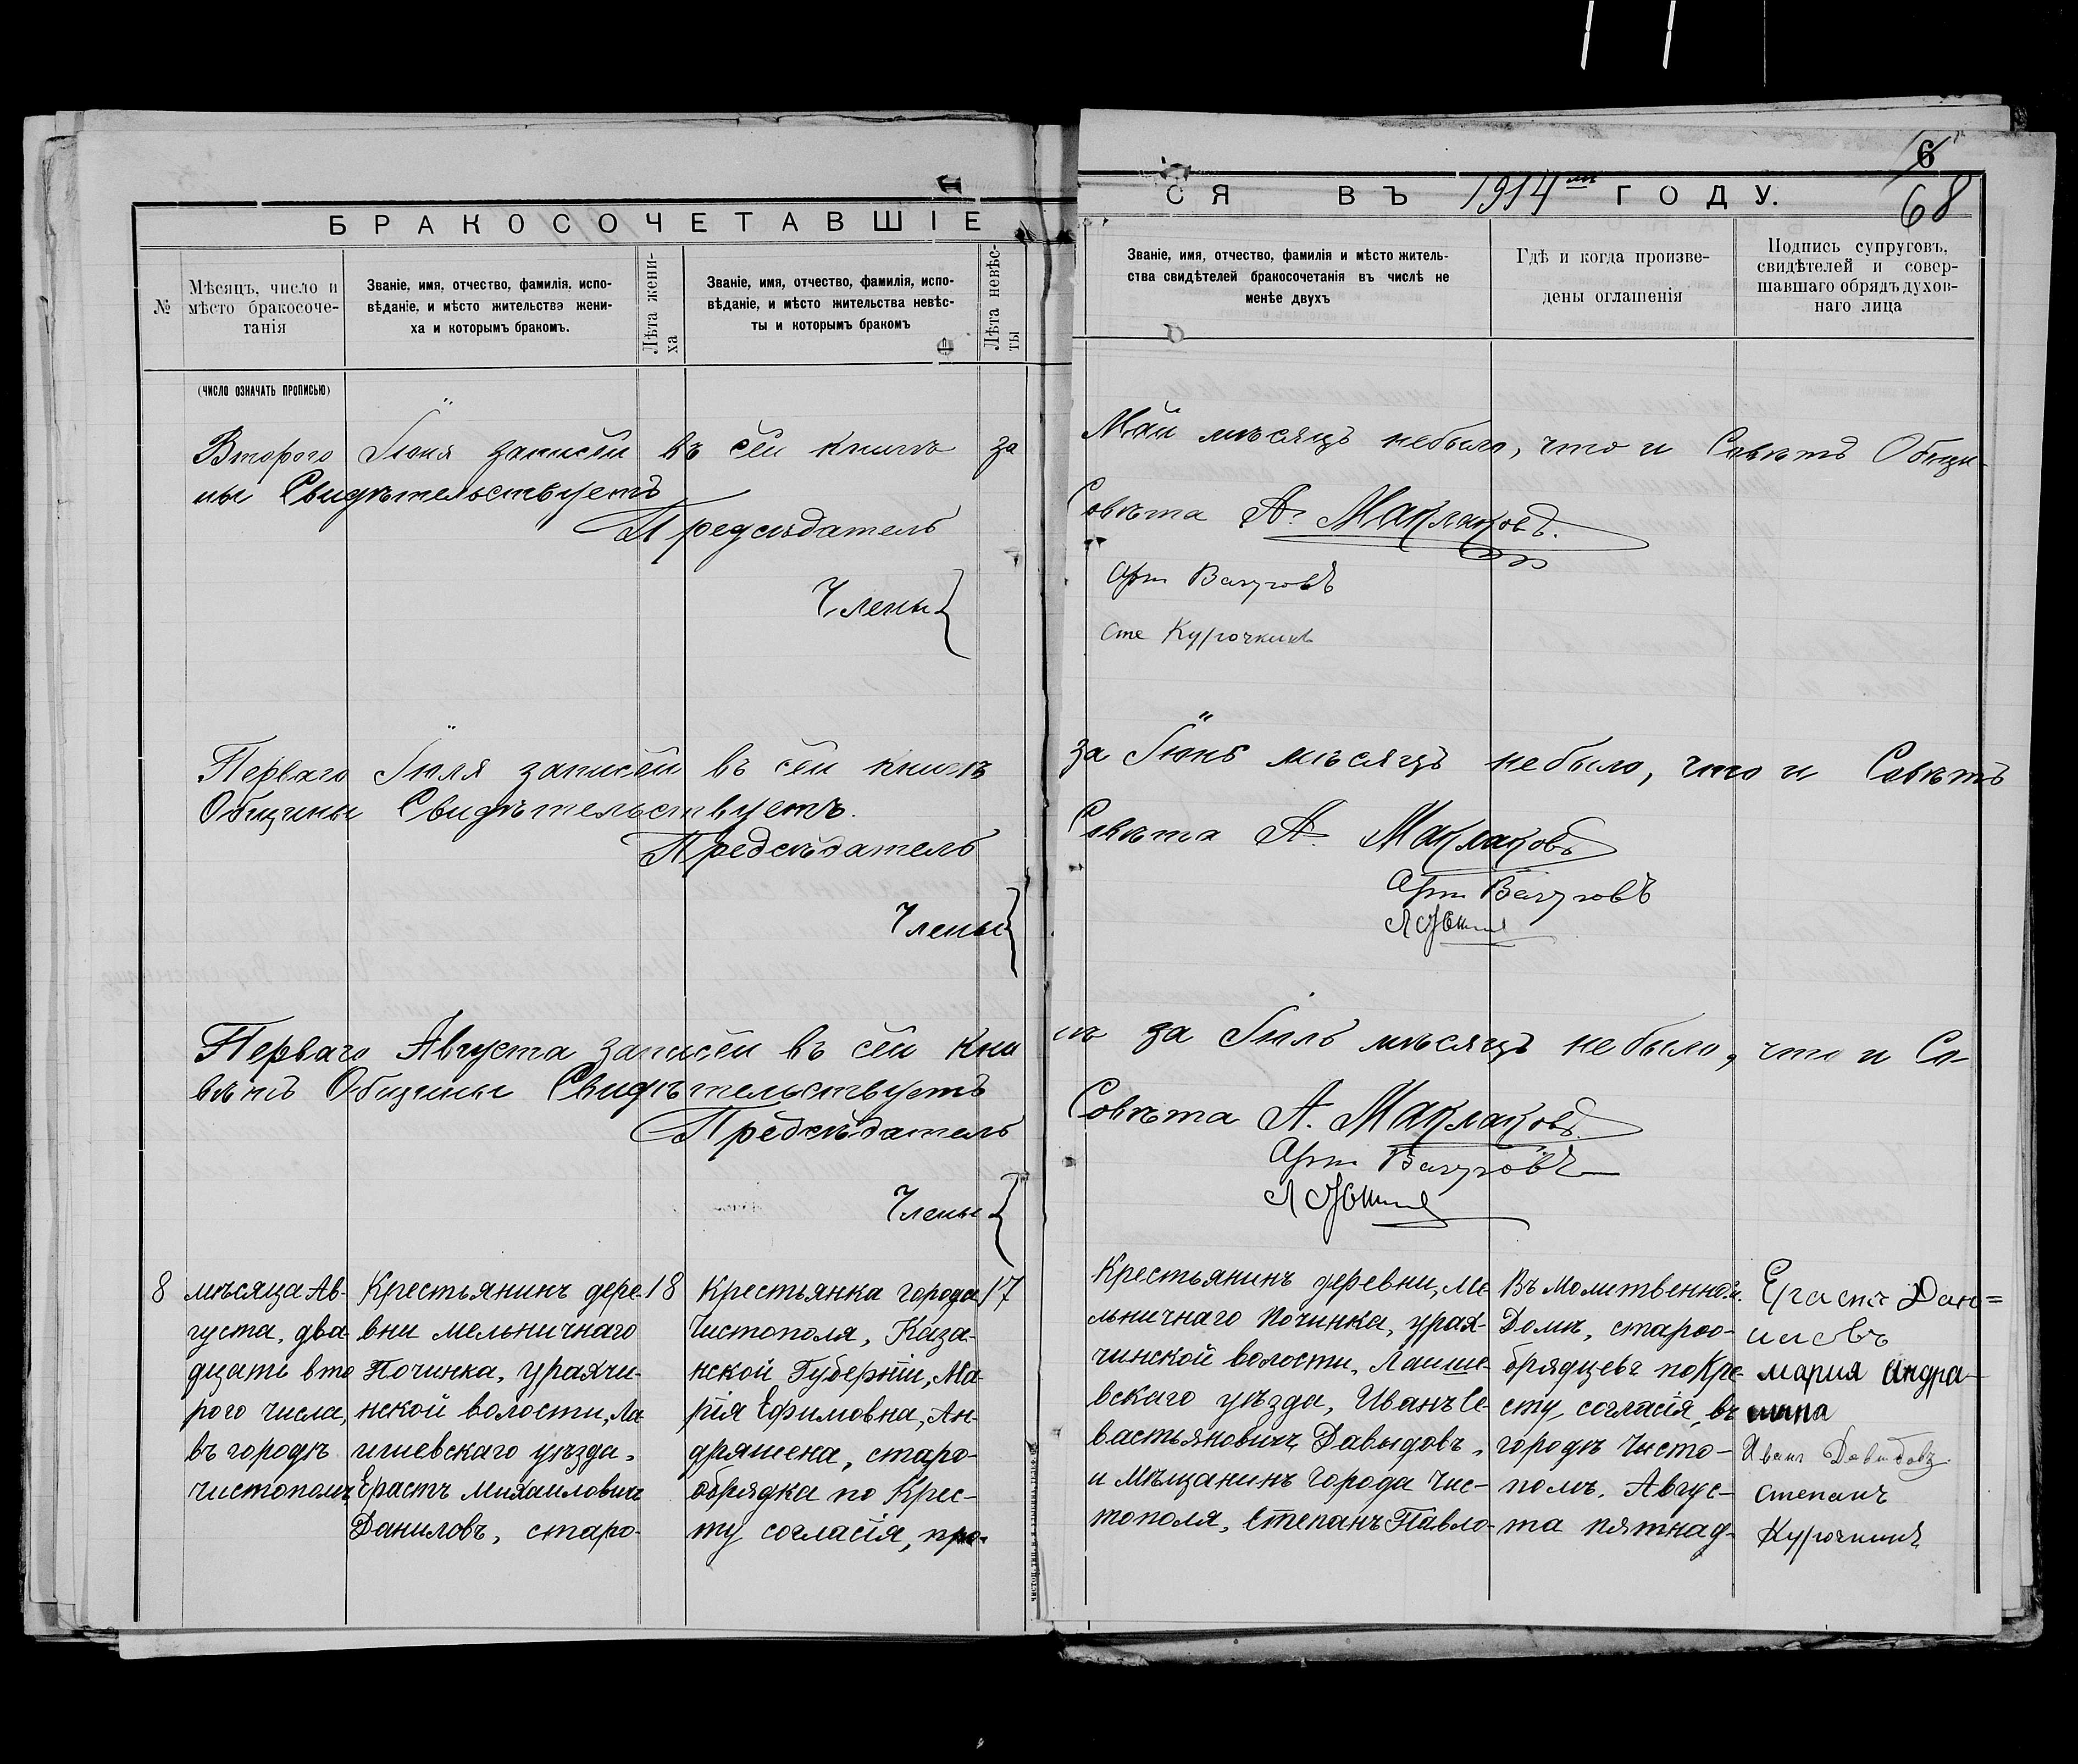 6
68
БРАКОСОЧЕТАВШІЕ
СЯ ВЪ 1914 мъ ГОДУ.
№
Мѣсяцъ, число и
мѣсто бракосоче-
танія
Званіе, имя, отчество, фамилія, испо-
вѣданіе, и мѣсто жительства жени-
ха и которымъ бракомъ.
Лѣта жени-
ха
Званіе, имя, отчество, фамилія, испо-
вѣданіе, и мѣсто жительства невѣс-
ты и которымъ бракомъ
Лѣта невѣс-
ты
Званіе, имя, отчество, фамилія и мѣсто житель-
ства свидѣтелей бракосочетанія въ числѣ не
менѣе двухъ
Гдѣ и когда произве-
дены оглашенія
Подпись супруговъ,
свидѣтелей и совер-
шавшаго обрядъ духов-
наго лица
(ЧИСЛО ОЗНАЧАТЬ ПРОПИСЬЮ)
Второго Іюня записей въ сей книгѣ за Май мѣсяцъ небыло, что и Совѣтъ Общи-
ны Свидѣтельствуетъ
Предсѣдатель Совѣта А. Маклаковъ.
Члены
Арт Вагуровъ
Сте Курочкинъ
Перваго Іюля записей въ сей книгѣ за Іюнь мѣсяцъ небыло, что и Совѣтъ
Общины Свидѣтельствуетъ.
Предсѣдатель Совѣта А. Маклаковъ
Члены
Арт Вагуровъ
Перваго Августа записей въ сей кни гѣ за Іюль мѣсяцъ небыло, что и Со-
вѣтъ Общины Свидѣтельствуетъ
Предсѣдатель Совѣта А. Маклаковъ
Члены
Арт Вагуровъ
8
мѣсяца Ав-
густа, два-
дцать вто
рого числа,
въ городѣ
чистополѣ
Крестьянинъ дере-
вни мельничнаго
Починка, урахчи-
нской волости, Ла-
ишевскаго уѣзда,
Ерастъ михаиловичъ
Даниловъ, старо-
18
Крестьянка города
Чистополя, Каза-
нской Губерніи, Ма-
рія Ефимовна, Ан-
дряшена, старо-
обрядка по Крес-
ту согласія, про-
17
Крестьянинъ деревни, ме-
льничнаго Починка, урах-
чинской волости, Лаише-
вскаго уѣзда, Иванъ Се-
вастьяновичъ Давыдовъ,
и мѣщанинъ города Чис-
тополя, Степанъ Павло-
Въ молитвенной
Домѣ, староо-
брядцевъ по Кре-
сту согласія, въ
городѣ Чисто-
полѣ. Авгус-
та пятнад-
Ерастъ Дан=
иловъ
мария андра-
шина
Иванъ Давыдовъ
степанъ
Курочкинъ